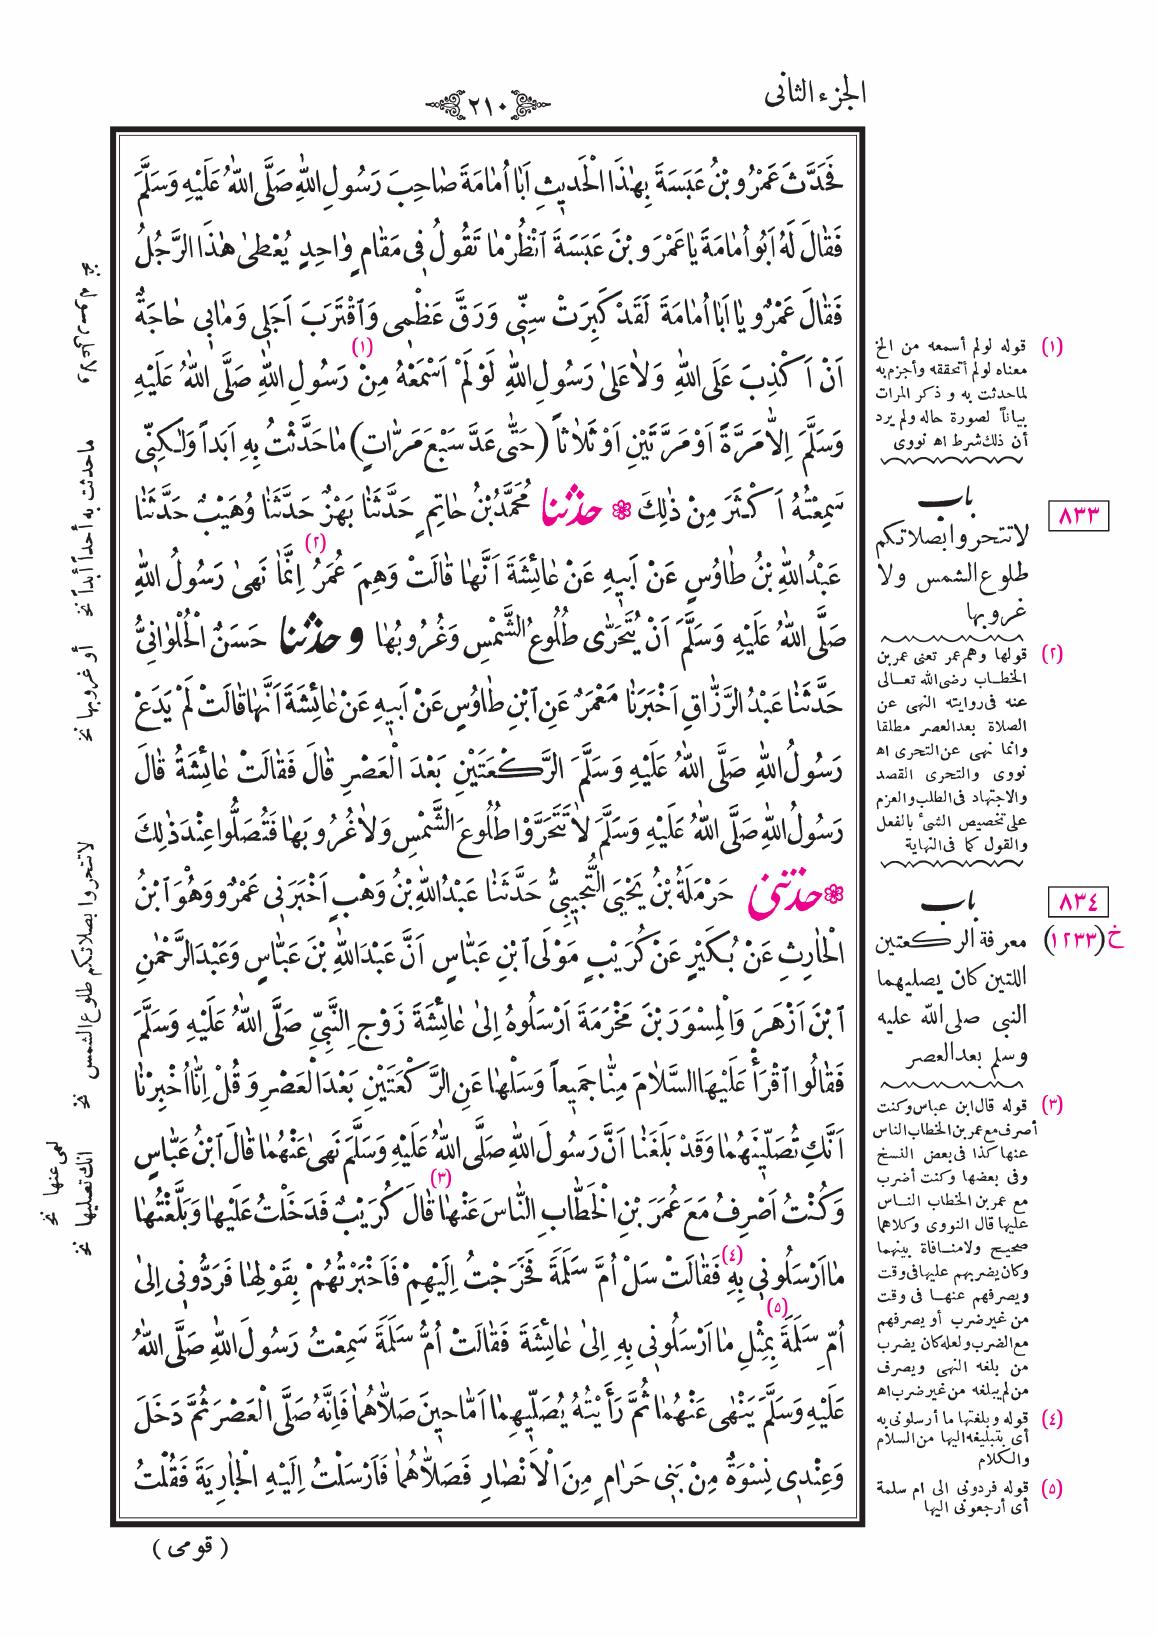 الجزء الثانى
٢١٠
فَحَدَّثَ عَمْرُو بْنُ عَبَسَةَ بِهٰذَا الْحَدِيثِ اَبَا اُمَامَةَ صَاحِبَ رَسُولِ اللّٰهِ صَلَّى اللّٰهُ عَلَيْهِ وَسَلَّمَ
فَقَالَ لَهُ اَبُو اُمَامَةَ يَا عَمْرَو بْنَ عَبَسَةَ اُنْظُرْ مَا تَقُولُ فِى مَقَامٍ وَاحِدٍ يُعْطَى هٰذَا الرَّجُلُ
فَقَالَ عَمْرٌو يَا اَبَا اُمَامَةَ لَقَدْ كَبِرَتْ سِنِّى وَرَقَّ عَظْمِى وَاقْتَرَبَ اَجَلِى وَمَا بِى حَاجَةٌ
اَنْ اَكْذِبَ عَلَى اللّٰهِ وَلَا عَلىٰ رَسُولِ اللّٰهِ لَوْ لَمْ (١) اَسْمَعْهُ مِنْ رَسُولِ اللّٰهِ صَلَّى اللّٰهُ عَلَيْهِ
وَسَلَّمَ اِلَّا مَرَّةً اَوْ مَرَّتَيْنِ اَوْ ثَلَاثاً (حَتَّى عَدَّ سَبْعَ مَرَّاتٍ) مَا حَدَّثْتُ بِهِ اَبَداً وَلٰكِنِّى
سَمِعْتُهُ اَكْثَرَ مِنْ ذٰلِكَ ❁ حدثنا مُحَمَّدُ بْنُ حَاتِمٍ حَدَّثَنَا بَهْزٌ حَدَّثَنَا وُهَيْبٌ حَدَّثَنَا
عَبْدُ اللّٰهِ بْنُ طَاوُسٍ عَنْ اَبِيهِ عَنْ عَائِشَةَ اَنَّهَا قَالَتْ وَهِمَ (٢) عُمَرُ اِنَّمَا نَهىٰ رَسُولُ اللّٰهِ
صَلَّى اللّٰهُ عَلَيْهِ وَسَلَّمَ اَنْ يُتَحَرَّى طُلُوعُ الشَّمْسِ وَغُرُوبُهَا و حدثنا حَسَنٌ الْحُلْوَانِىُّ
حَدَّثَنَا عَبْدُ الرَّزَّاقِ اَخْبَرَنَا مَعْمَرٌ عَنِ ابْنِ طَاوُسٍ عَنْ اَبِيهِ عَنْ عَائِشَةَ اَنَّهَا قَالَتْ لَمْ يَدَعْ
رَسُولُ اللّٰهِ صَلَّى اللّٰهُ عَلَيْهِ وَسَلَّمَ الرَّكْعَتَيْنِ بَعْدَ الْعَصْرِ قَالَ فَقَالَتْ عَائِشَةُ قَالَ
رَسُولُ اللّٰهِ صَلَّى اللّٰهُ عَلَيْهِ وَسَلَّمَ لَا تَتَحَرَّوْا طُلُوعَ الشَّمْسِ وَلَا غُرُوبَهَا فَتُصَلُّوا عِنْدَ ذٰلِكَ
❁ حدثنى حَرْمَلَةُ بْنُ يَحْيَى التُّجِيبِىُّ حَدَّثَنَا عَبْدُ اللّٰهِ بْنُ وَهْبٍ اَخْبَرَنِى عَمْرٌو وَهُوَ ابْنُ
الْحَارِثِ عَنْ بُكَيْرٍ عَنْ كُرَيْبٍ مَوْلَى ابْنِ عَبَّاسٍ اَنَّ عَبْدَ اللّٰهِ بْنَ عَبَّاسٍ وَعَبْدَ الرَّحْمٰنِ
ابْنَ اَزْهَرَ وَالْمِسْوَرَ بْنَ مَخْرَمَةَ اَرْسَلُوهُ اِلىٰ عَائِشَةَ زَوْجِ النَّبِىِّ صَلَّى اللّٰهُ عَلَيْهِ وَسَلَّمَ
فَقَالُوا اقْرَأْ عَلَيْهَا السَّلَامَ مِنَّا جَمِيعاً وَسَلْهَا عَنِ الرَّكْعَتَيْنِ بَعْدَ الْعَصْرِ وَقُلْ اِنَّا اُخْبِرْنَا
اَنَّكِ تُصَلِّينَهُمَا وَقَدْ بَلَغَنَا اَنَّ رَسُولَ اللّٰهِ صَلَّى اللّٰهُ عَلَيْهِ وَسَلَّمَ نَهىٰ عَنْهُمَا قَالَ ابْنُ عَبَّاسٍ
وَكُنْتُ اَصْرِفُ مَعَ عُمَرَ بْنِ الْخَطَّابِ النَّاسَ عَنْهَا (٣) قَالَ كُرَيْبٌ فَدَخَلْتُ عَلَيْهَا وَبَلَّغْتُهَا
مَا اَرْسَلُونِى بِهِ (٤) فَقَالَتْ سَلْ اُمَّ سَلَمَةَ فَخَرَجْتُ اِلَيْهِمْ فَاَخْبَرْتُهُمْ بِقَوْلِهَا فَرَدُّونِى اِلىٰ
اُمِّ سَلَمَةَ (٥) بِمِثْلِ مَا اَرْسَلُونِى بِهِ اِلىٰ عَائِشَةَ فَقَالَتْ اُمُّ سَلَمَةَ سَمِعْتُ رَسُولَ اللّٰهِ صَلَّى اللّٰهُ
عَلَيْهِ وَسَلَّمَ يَنْهٰى عَنْهُمَا ثُمَّ رَأَيْتُهُ يُصَلِّيهِمَا اَمَّا حِينَ صَلَّاهُمَا فَاِنَّهُ صَلَّى الْعَصْرَ ثُمَّ دَخَلَ
وَعِنْدِى نِسْوَةٌ مِنْ بَنِى حَرَامٍ مِنَ الْاَنْصَارِ فَصَلَّاهُمَا فَاَرْسَلْتُ اِلَيْهِ الْجَارِيَةَ فَقُلْتُ
( قومى )
(١) قوله لو لم أسمعه من الخ
معناه لو لم أتحققه وأجزم به
لما حدثت به و ذكر المرات
بياناً لصورة حاله ولم يرد
أن ذلك شرط اه نووى
٨٣٣
باب
لا تتحروا بصلاتكم
طلوع الشمس ولا
غروبها
(٢) قولها وهم عمر تعنى عمر بن
الخطاب رضى الله تعالى
عنه فى روايته النهى عن
الصلاة بعد العصر مطلقا
وانما نهى عن التحرى اه
نووى والتحرى القصد
والاجتهاد فى الطلب والعزم
على تخصيص الشىء بالفعل
والقول كما فى النهاية
٨٣٤
خ (١٢٣٣)
باب
معرفة الركعتين
اللتين كان يصليهما
النبى صلى الله عليه
وسلم بعد العصر
(٣) قوله قال ابن عباس وكنت
أصرف مع عمر بن الخطاب الناس
عنها كذا فى بعض النسخ
وفى بعضها وكنت أضرب
مع عمر بن الخطاب الناس
عليها قال النووى وكلاهما
صحيح ولا منافاة بينهما
وكان يضربهم عليها فى وقت
ويصرفهم عنها فى وقت
من غير ضرب أو يصرفهم
مع الضرب ولعله كان يضرب
من بلغه النهى ويصرف
من لم يبلغه من غير ضرب اه
(٤) قوله وبلغتها ما أرسلونى به
أى بتبليغه اليها من السلام
والكلام
(٥) قوله فردونى الى ام سلمة
أى أرجعونى اليها
ولا على رسوله نخ
ما حدثت به أحداً أبداً نخ
أو غروبها نخ
لا تتحروا بصلاتكم طلوع الشمس نخ
انك تصليها نخ
نهى عنها نخ